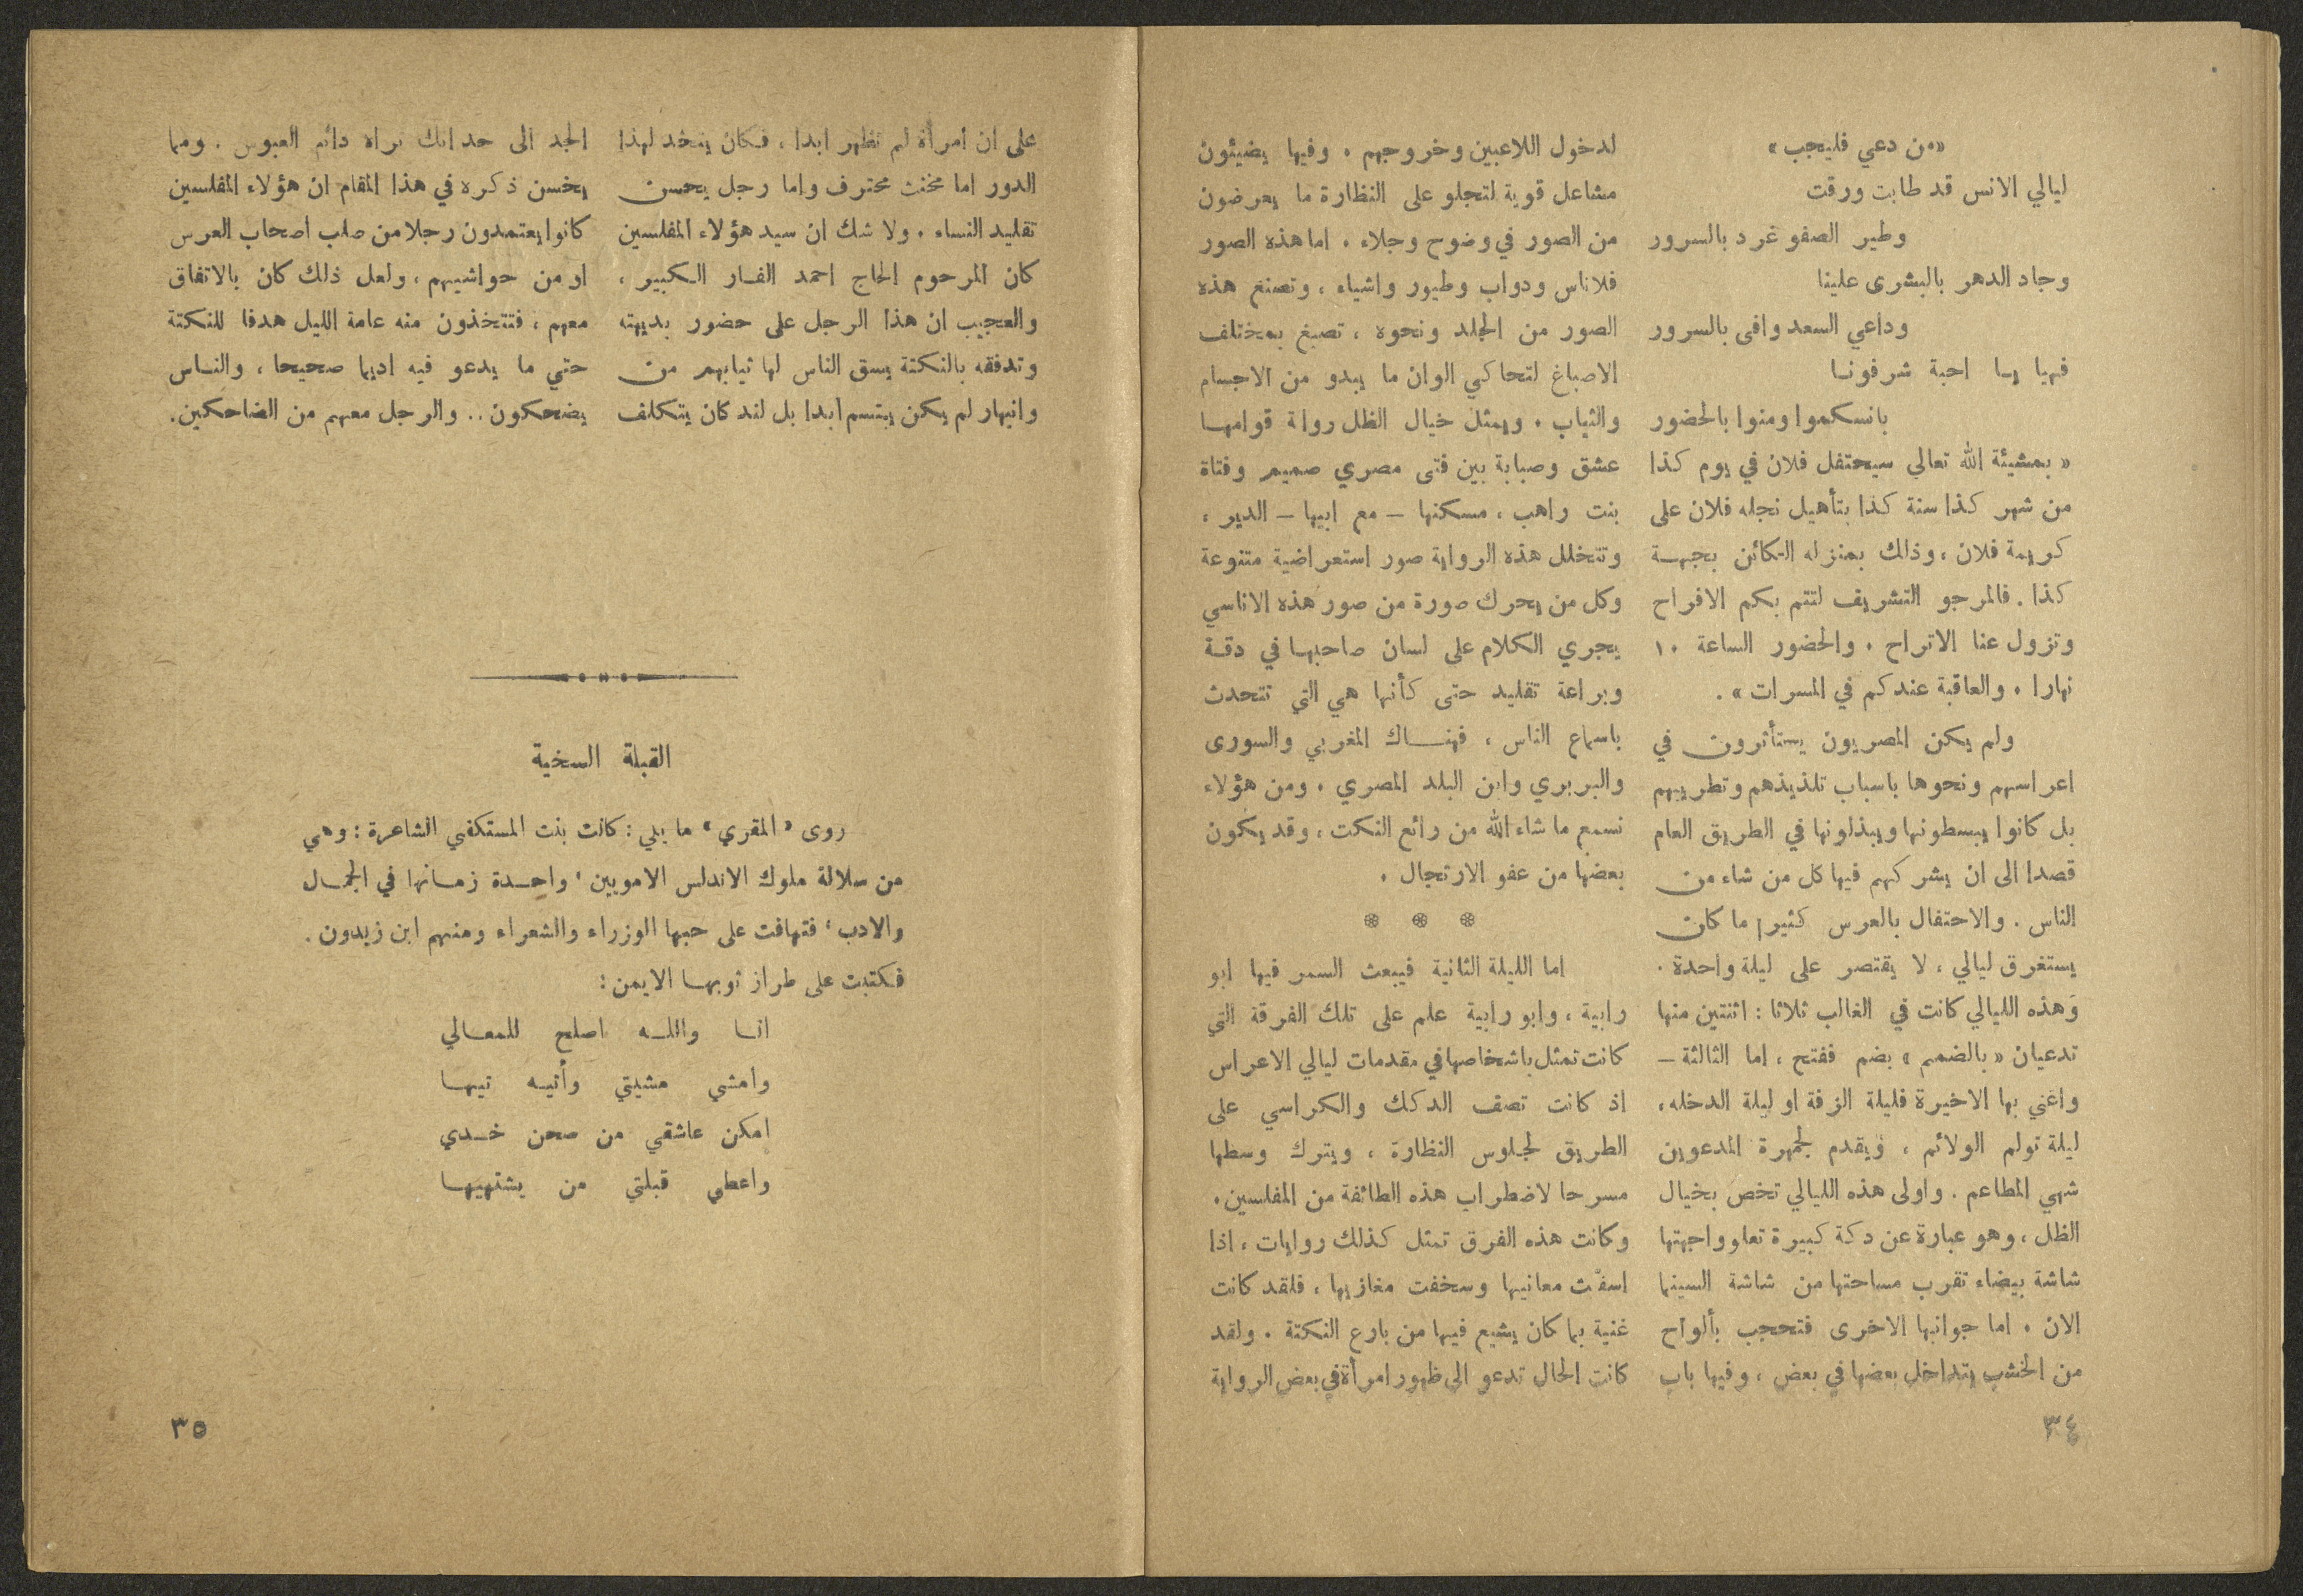 «من دعي فليجب»
ليالي الانس قد طابت ورقت
وطير الصفو غرد بالسرور
وجاد الدهر بالبشرى علينا
وداعي السعد وافى بالسرور
فهيا يا احبة شرفونا
بانسكموا ومنوا بالحضور
« بمشيئة الله تعالى سيحتفل فلان في يوم كذا
من شهر كذا سنة كذا بتأهيل نجله فلان على
كريمة فلان ، وذلك بمنزله الكائن بجهة
كذا . فالمرجو التشريف لتتم بكم الافراح
وتزول عنا الاتراح . والحضور الساعة ١٠
نهارا . والعاقبة عندكم في المسرات » .
ولم يكن المصريون يستأثرون في
اعراسهم ونحوها باسباب تلذيذهم وتطريبهم
بل كانوا يبسطونها ويبذلونها في الطريق العام
قصدا الى ان يشركهم فيها كل من شاء من
الناس . والاحتفال بالعرس كثيرا ما كان
يستغرق ليالي ، لا يقتصر على ليلة واحدة .
وهذه الليالي كانت في الغالب ثلاثا : اثنتين منها
تدعيان « بالضمم » بضم ففتح ، اما الثالثة –
واعني بها الاخيرة فليلة الزفة او ليلة الدخله ،
ليلة تولم الولائم ، ويقدم لجمهرة المدعوين
شهي المطاعم . واولى هذه الليالي تخص بخيال
الظل ، وهو عبارة عن دكة كبيرة تعلو واجهتها
شاشة بيضاء تقرب مساحتها من شاشة السينما
الان . اما جوانبها الاخرى فتحجب بألواح
من الخشب يتداخل بعضها في بعض ، وفيها باب
لدخول اللاعبين وخروجهم . وفيها يضيئون
مشاعل قوية لتجلو على النظارة ما يعرضون
من الصور في وضوح وجلاء . اما هذه الصور
فلاناس ودواب وطيور واشياء ، وتصنع هذه
الصور من الجلد ونحوه ، تصبغ بمختلف
الاصباغ لتحاكي الوان ما يبدو من الاجسام
والثياب . ويمثل خيال الظل رواة قوامها
عشق وصبابة بين فتى مصري صميم وفتاة
بنت راهب ، مسكنها – مع ابيها – الدير ،
وتتخلل هذه الرواية صور استعراضية متنوعة
وكل من يحرك صورة من صور هذه الاناسي
يجري الكلام على لسان صاحبها في دقة
وبراعة تقليد حتى كأنها هي التي تتحدث
باسماع الناس ، فهناك المغربي والسورى
والبربري وابن البلد المصري . ومن هؤلاء
نسمع ما شاء الله من رائع النكت ، وقد يكون
بعضها من عفو الارتجال .
❊ ❊ ❊
اما الليلة الثانية فيبعث السمر فيها ابو
رابية ، وابو رابية علم على تلك الفرقة التي
كانت تمثل باشخاصها في مقدمات ليالي الاعراس
اذ كانت تصف الدكك والكراسي على
الطريق لجلوس النظارة ، ويترك وسطها
مسرحا لاضطراب هذه الطائفة من المفلسين .
وكانت هذه الفرق تمثل كذلك روايات ، اذا
اسفّت معانيها وسخفت مغازيها ، فلقد كانت
غنية بما كان يشيع فيها من بارع النكتة . ولقد
كانت الحال تدعو الى ظهور امرأة في بعض الرواية
٣٤
على ان امرأة لم تظهر ابدا ، فكان يتخذ لهذا
الدور اما مخنث محترف واما رجل يحسن
تقليد النساء . ولا شك ان سيد هؤلاء المفلسين
كان المرحوم الحاج احمد الفار الكبير ،
والعجيب ان هذا الرجل على حضور بديهته
وتدفقه بالنكتة يسق الناس لها ثيابهم من
وانبهار لم يكن يبتسم ابدا بل لقد كان يتكلف
الجد الى حد انك تراه دائم العبوس . ومما
يحسن ذكره في هذا المقام ان هؤلاء المفلسين
كانوا يعتمدون رجلا من صلب اصحاب العرس
او من حواشيهم ، ولعل ذلك كان بالاتفاق
معهم ، فتتخذون منه عامة الليل هدفا للنكتة
حتي ما يدعو فيه اديما صحيحا ، والناس
يضحكون .. والرجل معهم من الضاحكين .
القبلة السخية
روى « المقري » ما يلي : كانت بنت المستكفي الشاعرة : وهي
من سلالة ملوك الاندلس الامويين ، واحدة زمانها في الجمال
والادب ، فتهافت على حبها الوزراء والشعراء ومنهم ابن زيدون .
فكتبت على طراز ثوبها الايمن :
انا والله اصلح للمعالي
وامشي مشيتي وأتيه تيها
امكن عاشقي من صحن خدي
واعطي قبلتي من يشتهيها
٣٥